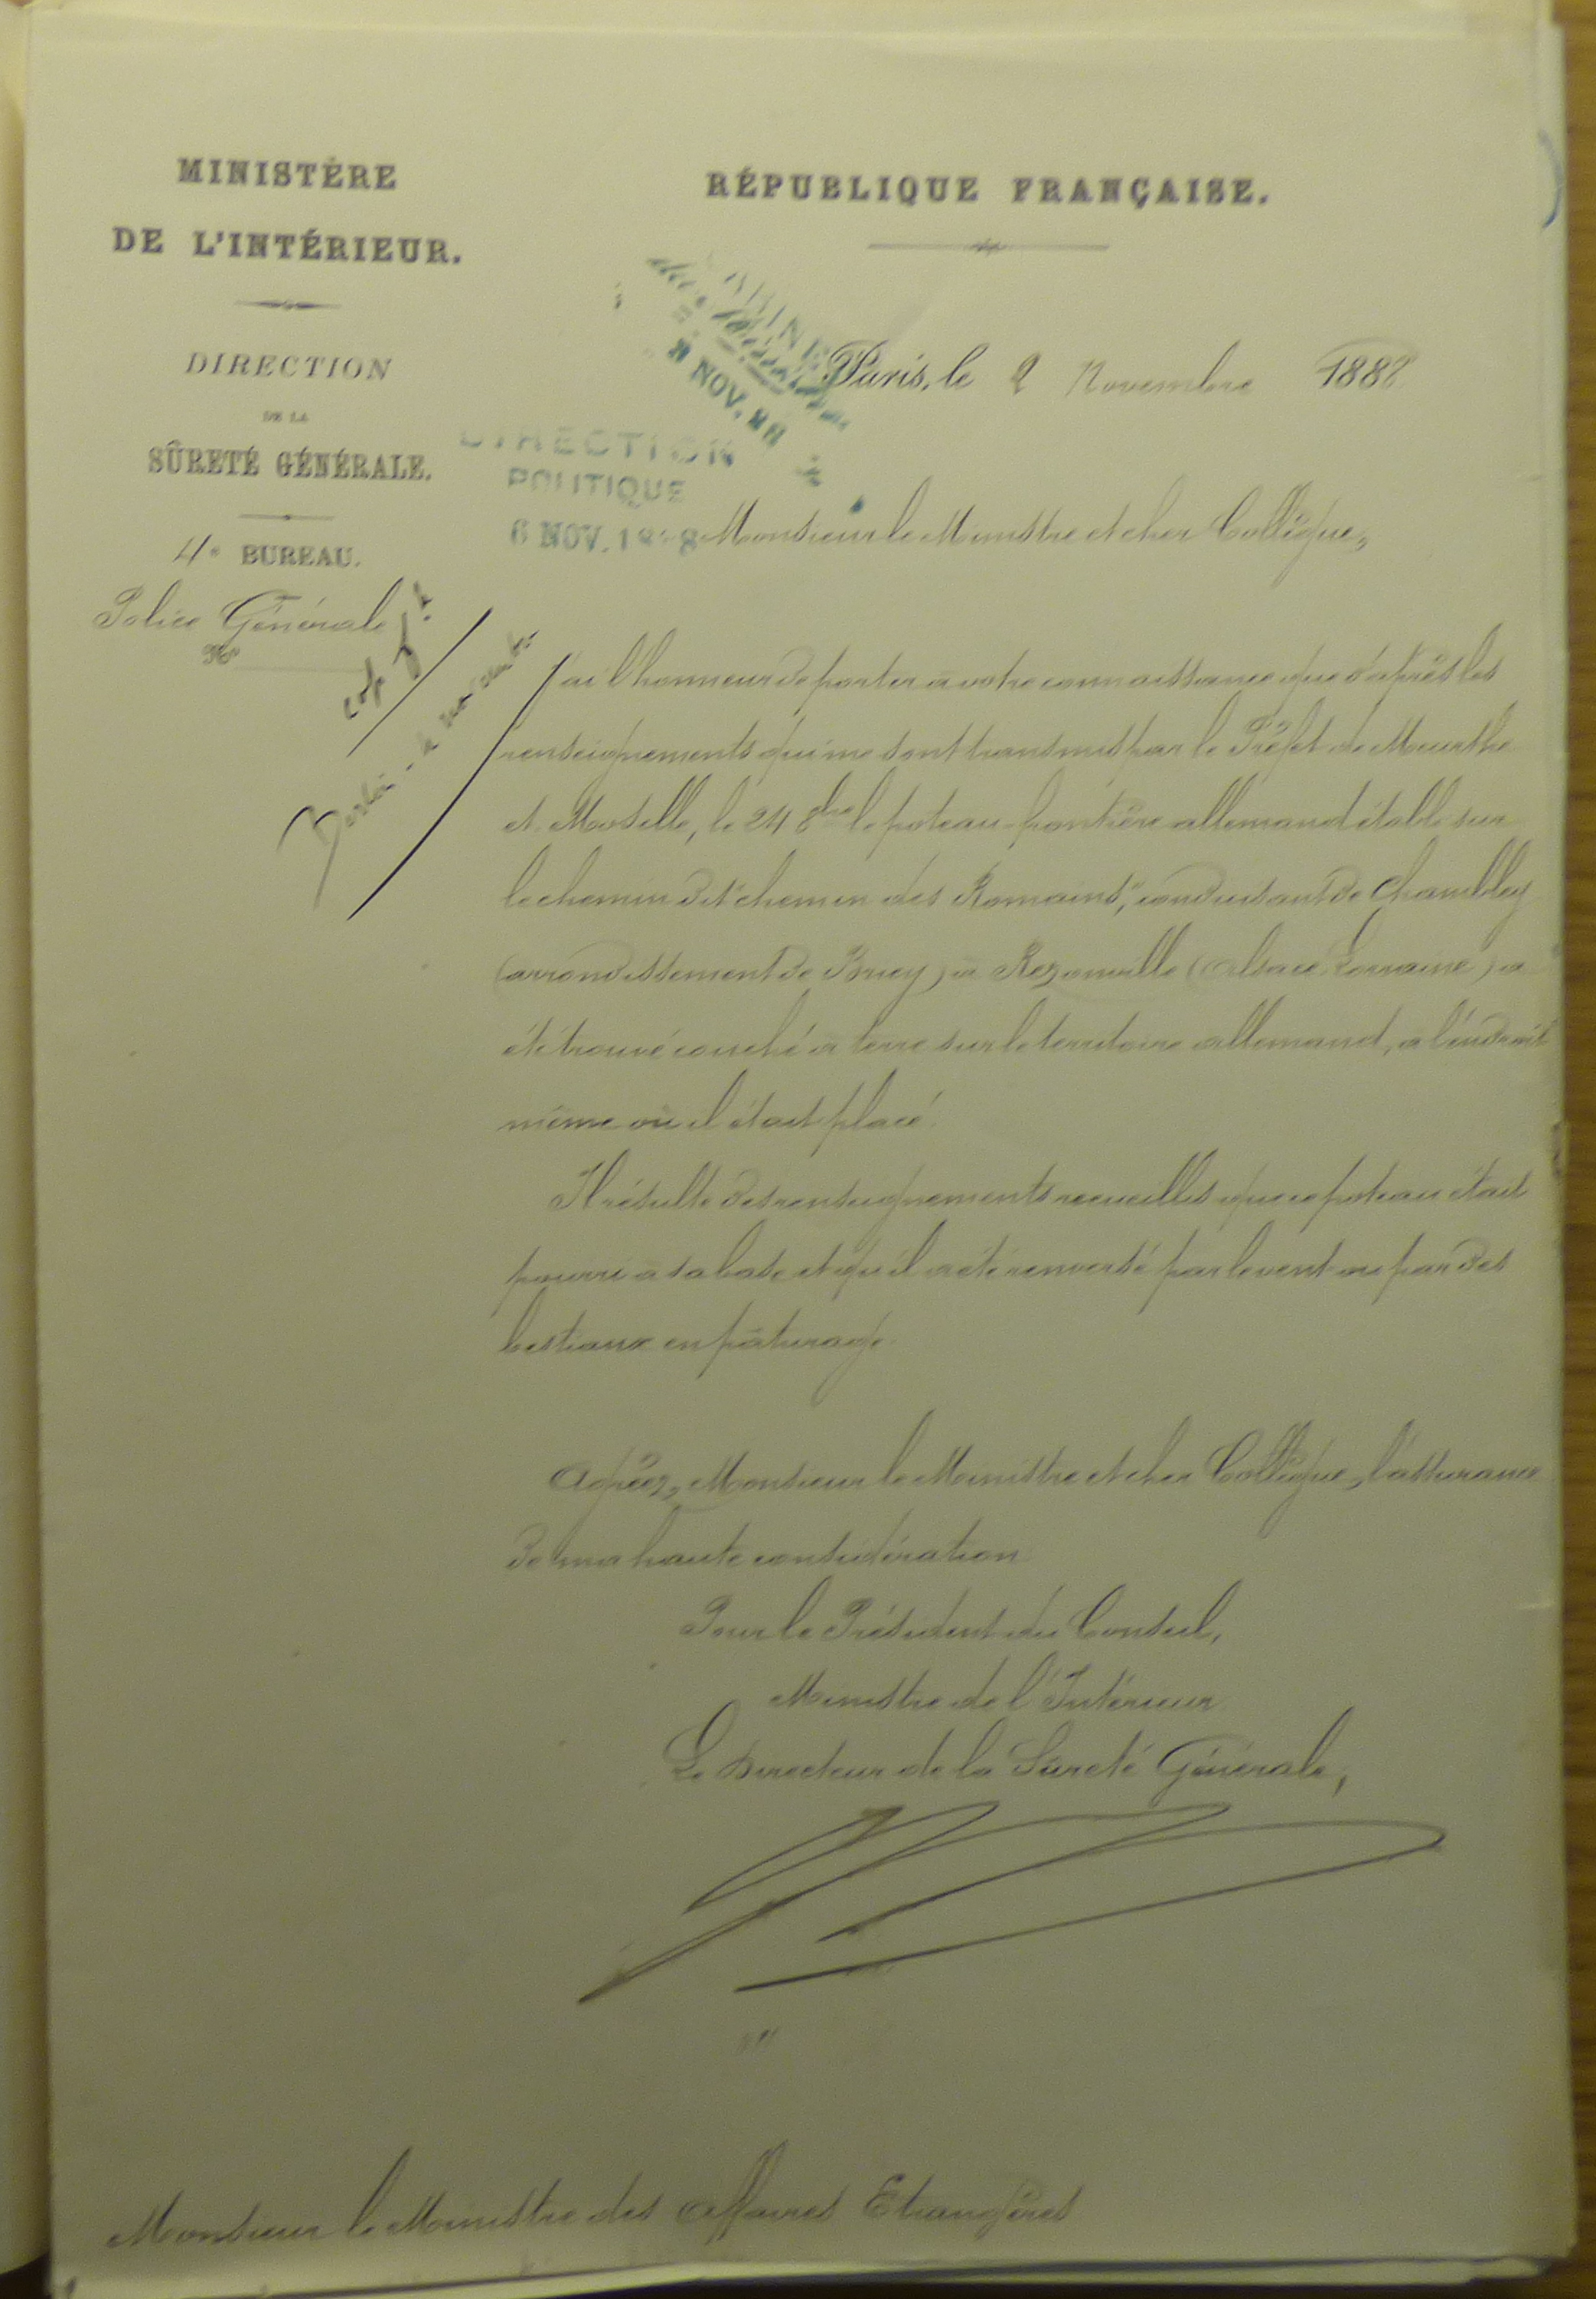 MINISTÈRE
DE L'INTÉRIEUR.
DIRECTION
DE LA
SÛRETÉ GÉNÉRALE.
4e BUREAU.
Police Générale
No
RÉPUBLIQUE FRANÇAISE.
NOV. 88
DIRECTION
POLITIQUE
6 NOV. 1888
Paris, le 2 Novembre 1888
Monsieur le Ministre et cher Collègue,
J'ai l'honneur de porter à votre connaissance que d'après les
renseignements qui me sont transmis par le Préfet de Meurthe
et Moselle, le 24 8bre le poteau-frontière allemand établi sur
le chemin dit "chemin des Romains", conduisant de Chambley
(arrondissement de Briey) à Rezonville (Alsace Lorraine) a
été trouvé couché à terre sur le territoire allemand, à l'endroit
même où il était placé.
Il résulte des renseignements recueillis que ce poteau était
pourri à sa base et qu'il a été renversé par le vent ou par des
bestiaux en pâturage.
Agréez, Monsieur le Ministre et cher Collègue, l'assurance
de ma haute considération
Pour le Président du Conseil,
Ministre de l'Intérieur
Le Directeur de la Sûreté Générale,
Monsieur le Ministre des Affaires Etrangères